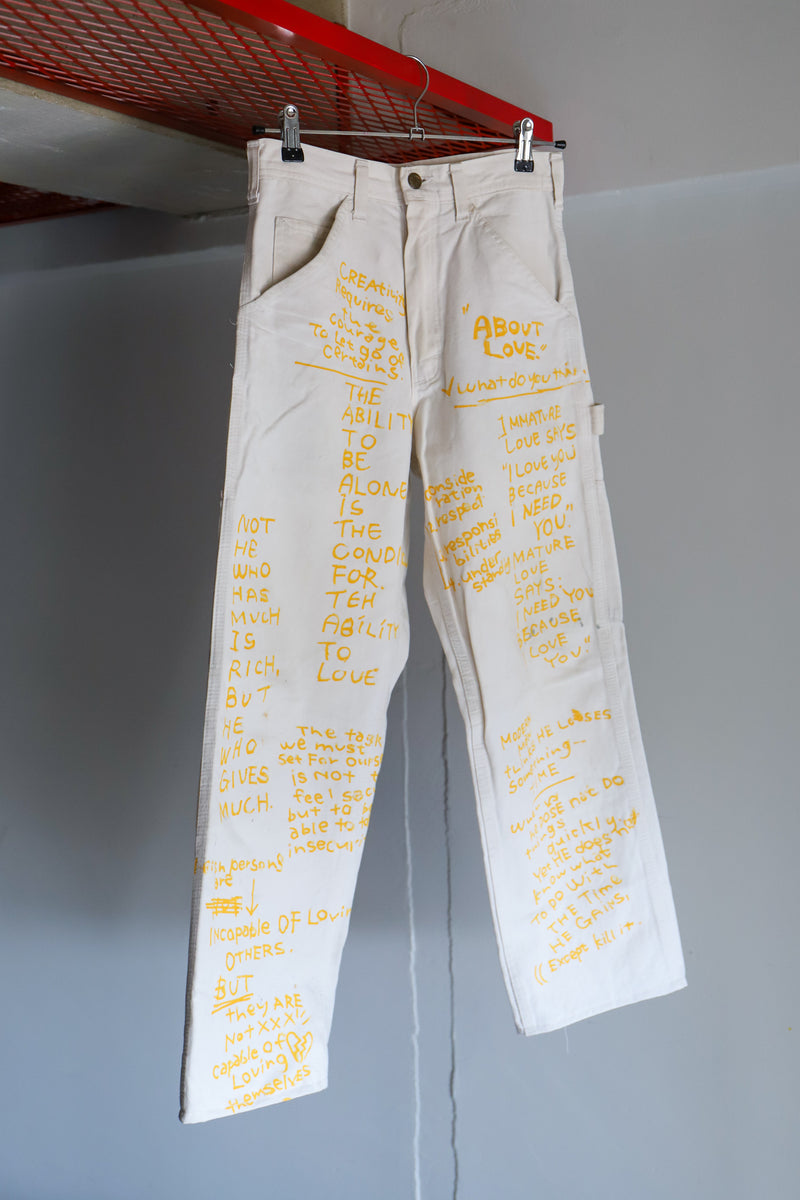 CREAtivity
Requires
the
courage
To Let go of
Certains.
THE
ABILITY
TO
BE
ALONE
IS
THE
CONDI
FOR.
TEH
ABiLiTY
TO
LOVE
NOT
HE
WHO
HAS
MUCH
IS
RICH,
BUT
HE
WHO
GIVES
MUCH.
The task
we must
Set For ours
is NOT t
feel sec
but to b
able to to
insecuri
persons
are
INcapable OF Lovin
OTHERS.
BUT
they ARE
Not XXX
capable of
Loving
themselves
"ABOUT
LOVE."
√ What do you thin
IMMATURE
LOVE SAYS
"I LOVE YOU
BECAUSE
I NEED
YOU."
MATURE
LOVE
SAYS:
I NEED YOU
BECAUSE
LOVE
YOU."
conside
ration
respect
responsi
bilities
under
standi
MODER
MAN
thinks HE LOSES
Something—
TIME
When
HE DOSE not DO
things
quickly,
Yet HE does not
know what
TO DO With
THE TIME
HE GAINS,
(( Except kill it.